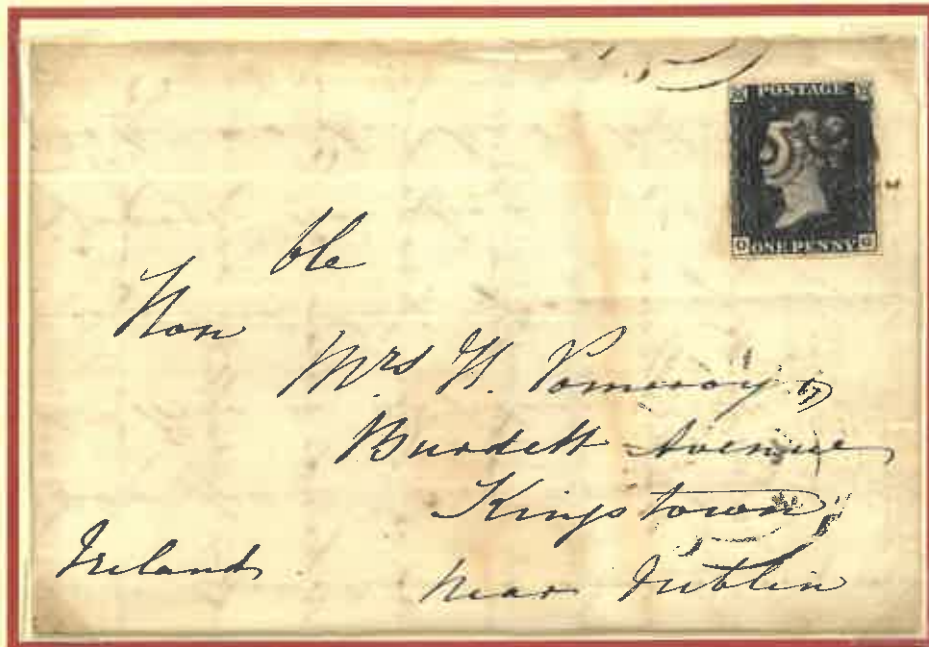 POSTAGE
ONE PENNY
Honble
Mrs H. Pomeroy
Burdett Avenue
Kingstown
Near Dublin
Ireland